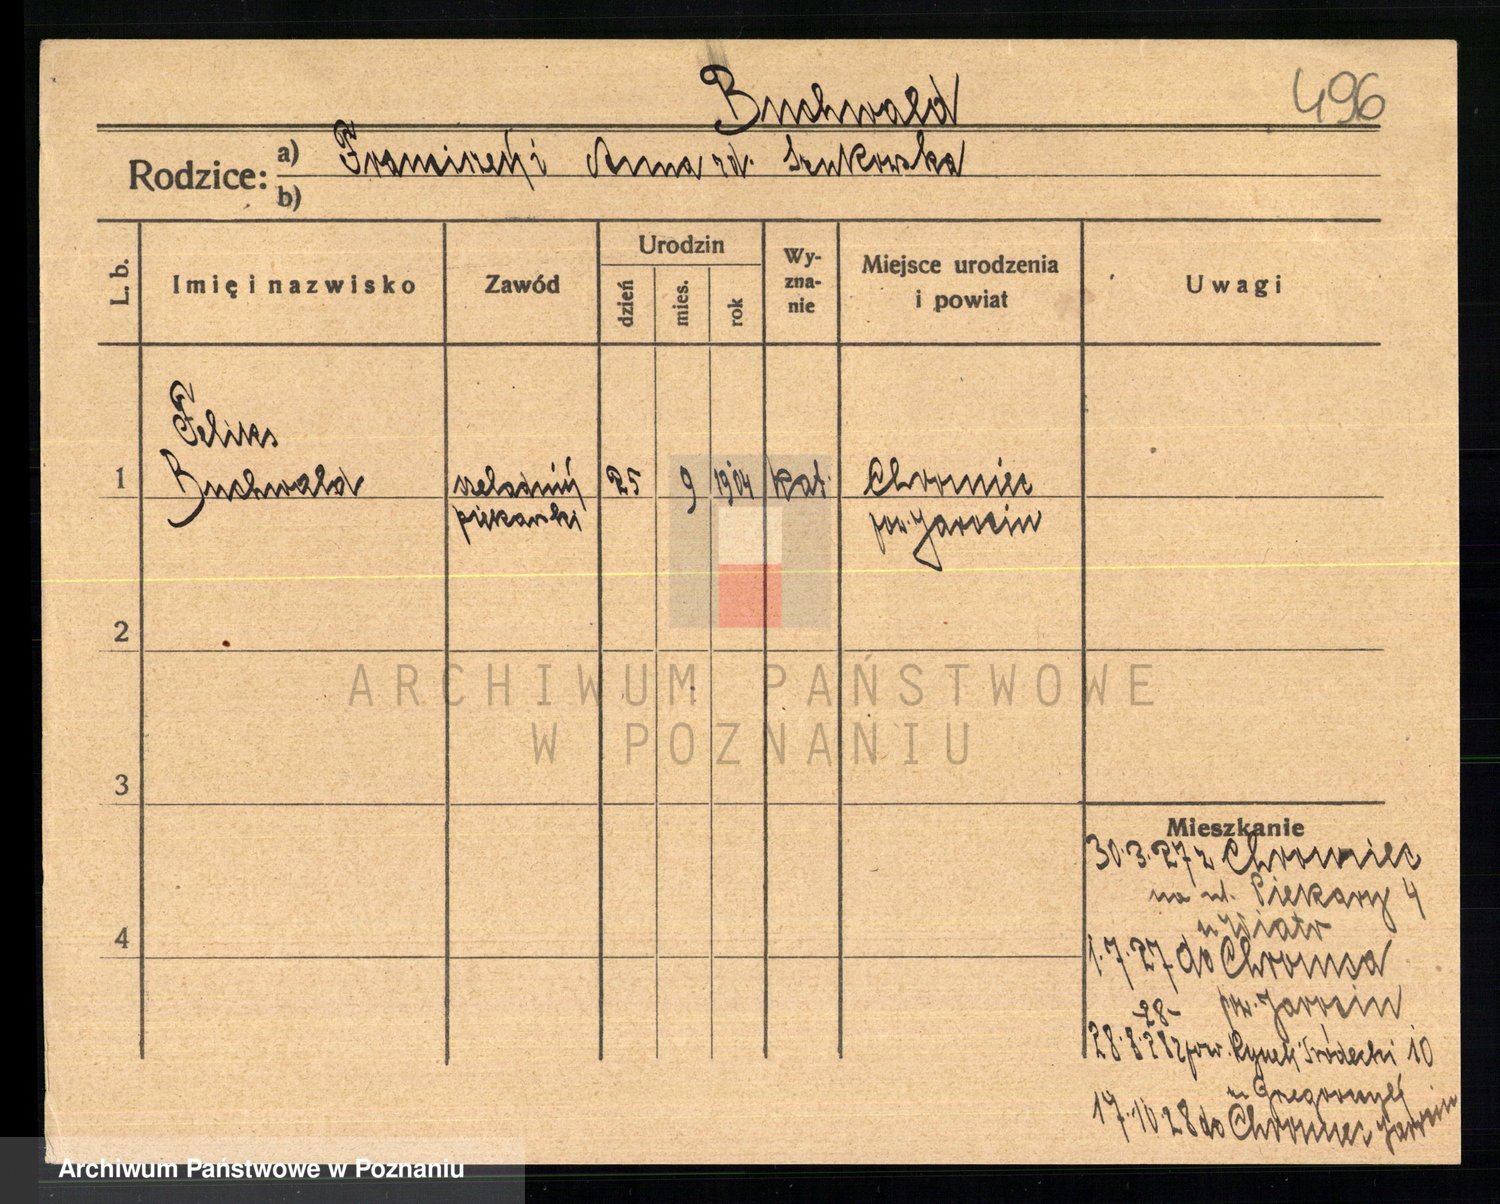 Buchwald
496
Rodzice:
a) Franciszek i Anna zd. Szukowska
b)
L. b.
Imię i nazwisko
Zawód
Urodzin
dzień
mies.
rok
Wy-
zna-
nie
Miejsce urodzenia
i powiat
Uwagi
Feliks
1 Buchwald czeladnik 25 9 1904 kat. Chromiec
piekarski pow. Jarocin
2
ARCHIWUM PAŃSTWOWE
W POZNANIU
3
Mieszkanie
30.3.27 z Chromiec
na ul. Piekary 4
u Wiatr
4
1.7.27 do Chromca
pow. Jarocin
28
28.8.28 z pow. Rynek Śródecki 10
u
17.10 28 do Chromiec Jarocin
Archiwum Państwowe w Poznaniu